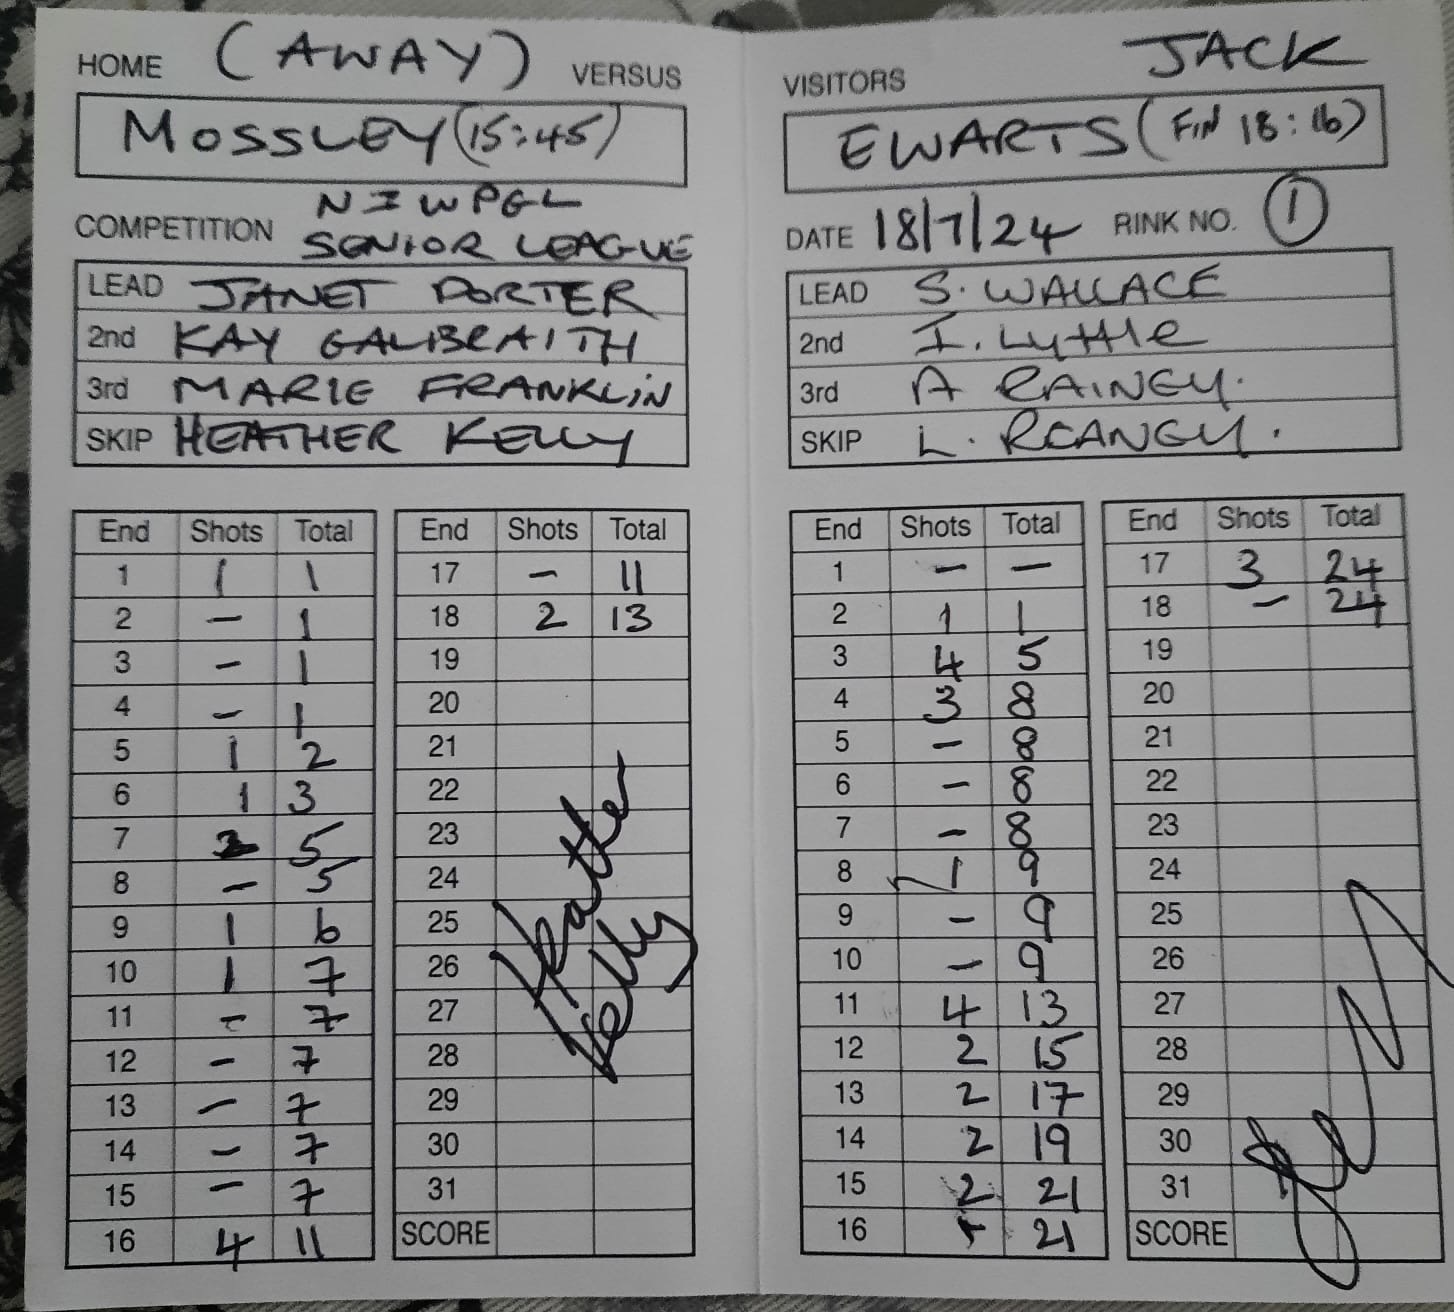 HOME (AWAY) VERSUS
MOSSLEY (15:45)
COMPETITION NIWPGL
SENIOR LEAGUE
LEAD JANET PORTER
2nd KAY GALIBRAITH
3rd MARIE FRANKLIN
SKIP HEATHER KELLY
End Shots Total
1 1 1
2 – 1
3 – 1
4 – 1
5 1 2
6 1 3
7 2 5
8 – 5
9 1 6
10 1 7
11 – 7
12 – 7
13 – 7
14 – 7
15 – 7
16 4 11
End Shots Total
17 – 11
18 2 13
19
20
21
22
23
24
25
26
27
28
29
30
31
SCORE
Heather
Kelly
JACK
VISITORS
EWARTS (FIN 18:16)
DATE 18/7/24 RINK NO. 1
LEAD S. WALLACE
2nd I. Lyttle
3rd A RAINEY.
SKIP L.
End Shots Total
1 – –
2 1 1
3 4 5
4 3 8
5 – 8
6 – 8
7 – 8
8 1 9
9 – 9
10 – 9
11 4 13
12 2 15
13 2 17
14 2 19
15 2 21
16 - 21
End Shots Total
17 3 24
18 – 24
19
20
21
22
23
24
25
26
27
28
29
30
31
SCORE